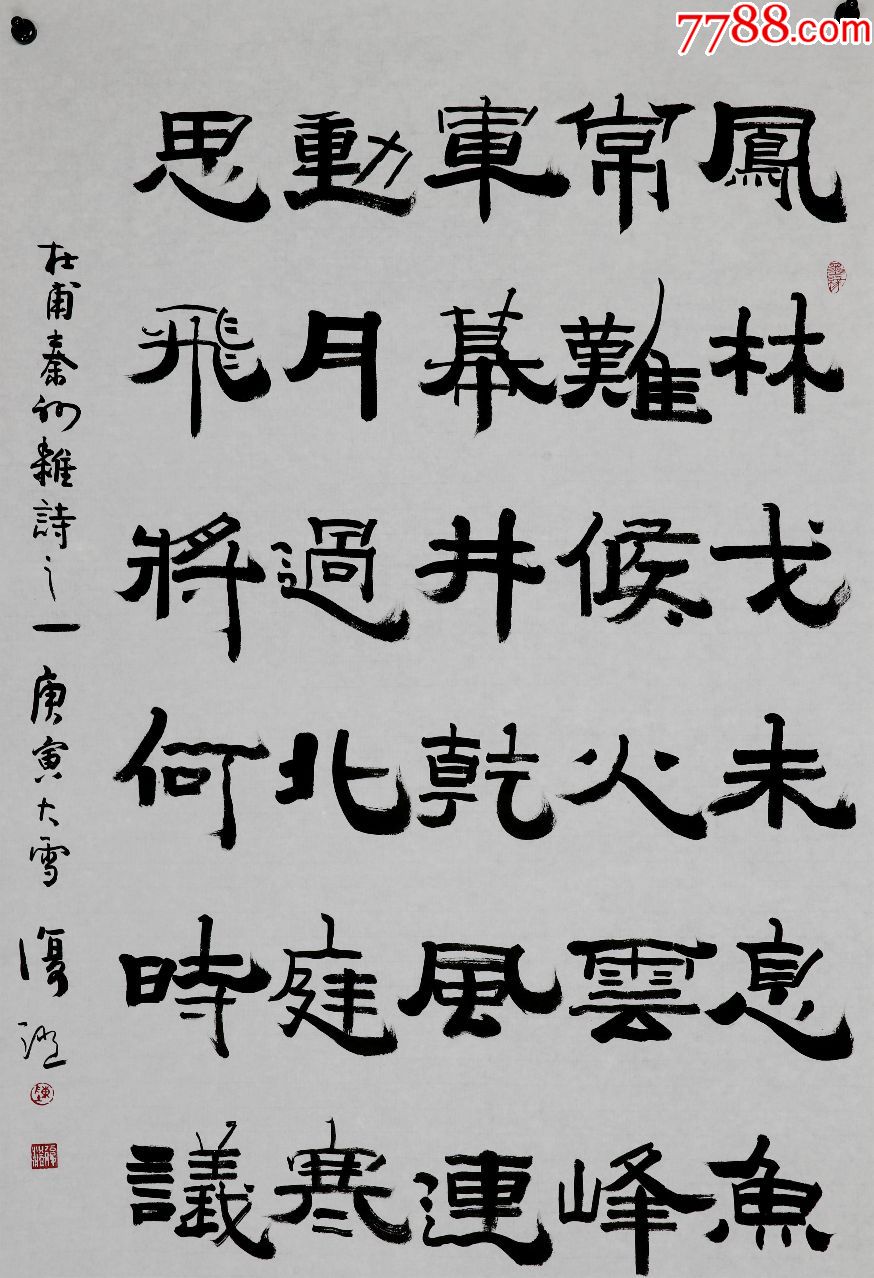 7788.com
鳳林戈未息魚
常難候火雲峰
軍幕井乾風連
動月過北庭寒
思飛將何時議
杜甫秦州雜詩之一庚寅大雪復